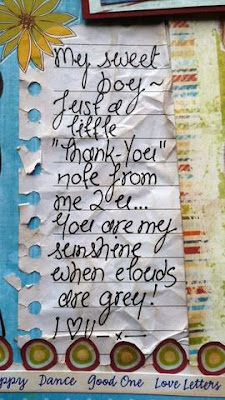 My sweet
boy~
Just a
little
"Thank-You"
note from
me 2 u...
You are my
sunshine
when clouds
are grey!
I ♡ U — x —
ppy Dance Good One Love Letters